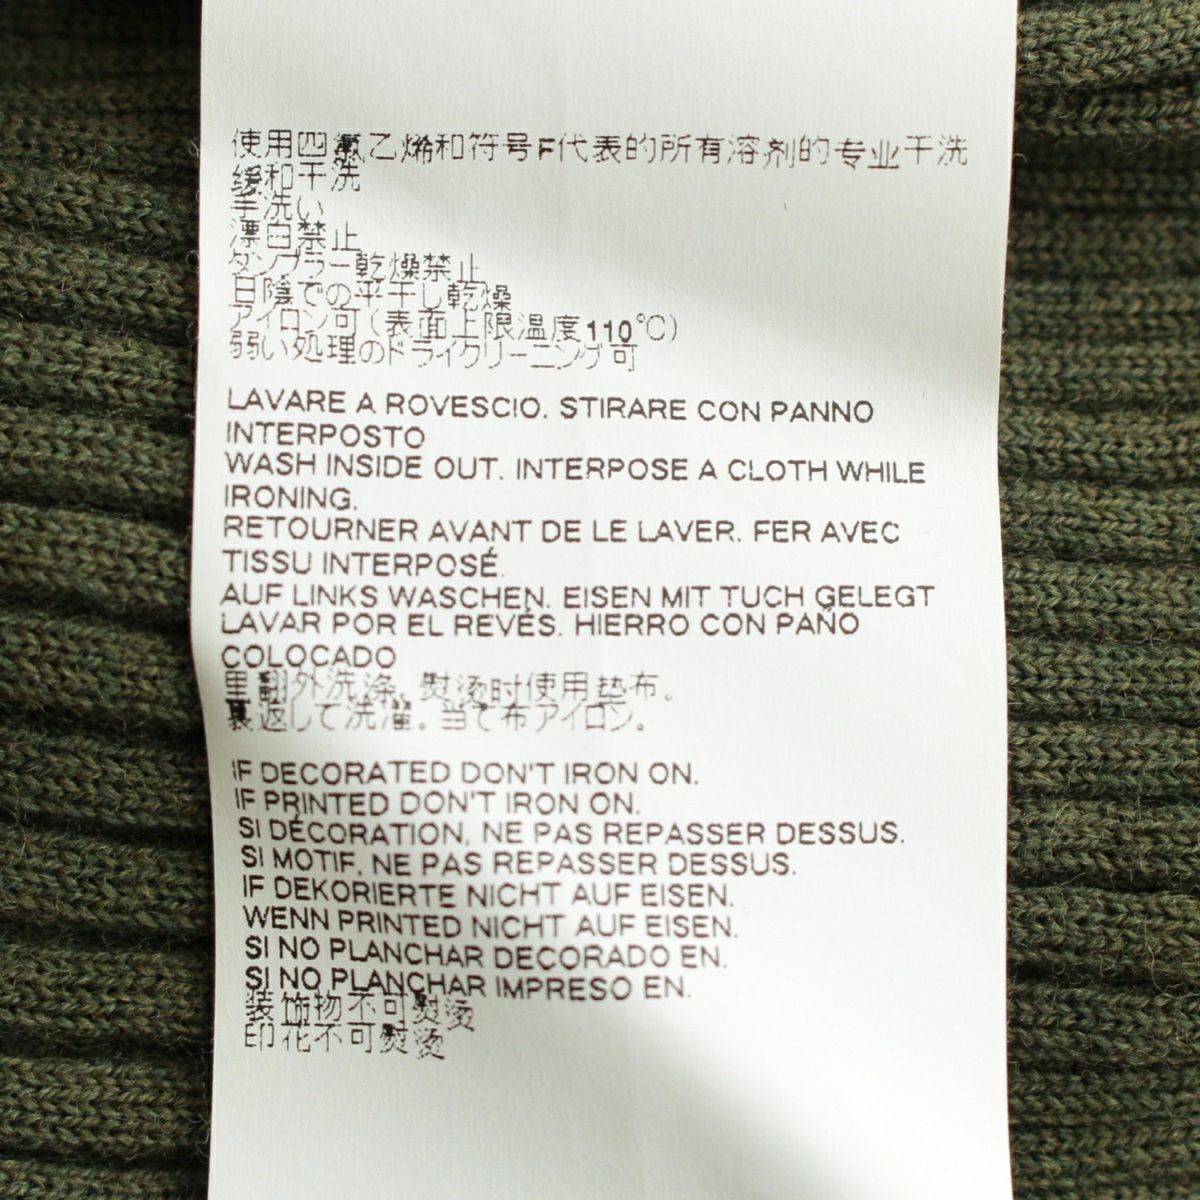 使用四氯乙烯和符号F代表的所有溶剂的专业干洗
缓和干洗
手洗い
漂白禁止
タンブラー乾燥禁止
日陰での平干し乾燥
アイロン可(表面上限温度110℃)
弱い処理のドライクリーニング可
LAVARE A ROVESCIO. STIRARE CON PANNO
INTERPOSTO
WASH INSIDE OUT. INTERPOSE A CLOTH WHILE
IRONING.
RETOURNER AVANT DE LE LAVER. FER AVEC
TISSU INTERPOSÉ.
AUF LINKS WASCHEN. EISEN MIT TUCH GELEGT
LAVAR POR EL REVÉS. HIERRO CON PAÑO
COLOCADO
里翻外洗涤。熨烫时使用垫布。
裏返して洗濯。当て布アイロン。
IF DECORATED DON'T IRON ON.
IF PRINTED DON'T IRON ON.
SI DÉCORATION, NE PAS REPASSER DESSUS.
SI MOTIF, NE PAS REPASSER DESSUS.
IF DEKORIERTE NICHT AUF EISEN.
WENN PRINTED NICHT AUF EISEN.
SI NO PLANCHAR DECORADO EN.
SI NO PLANCHAR IMPRESO EN.
装饰物不可熨烫
印花不可熨烫